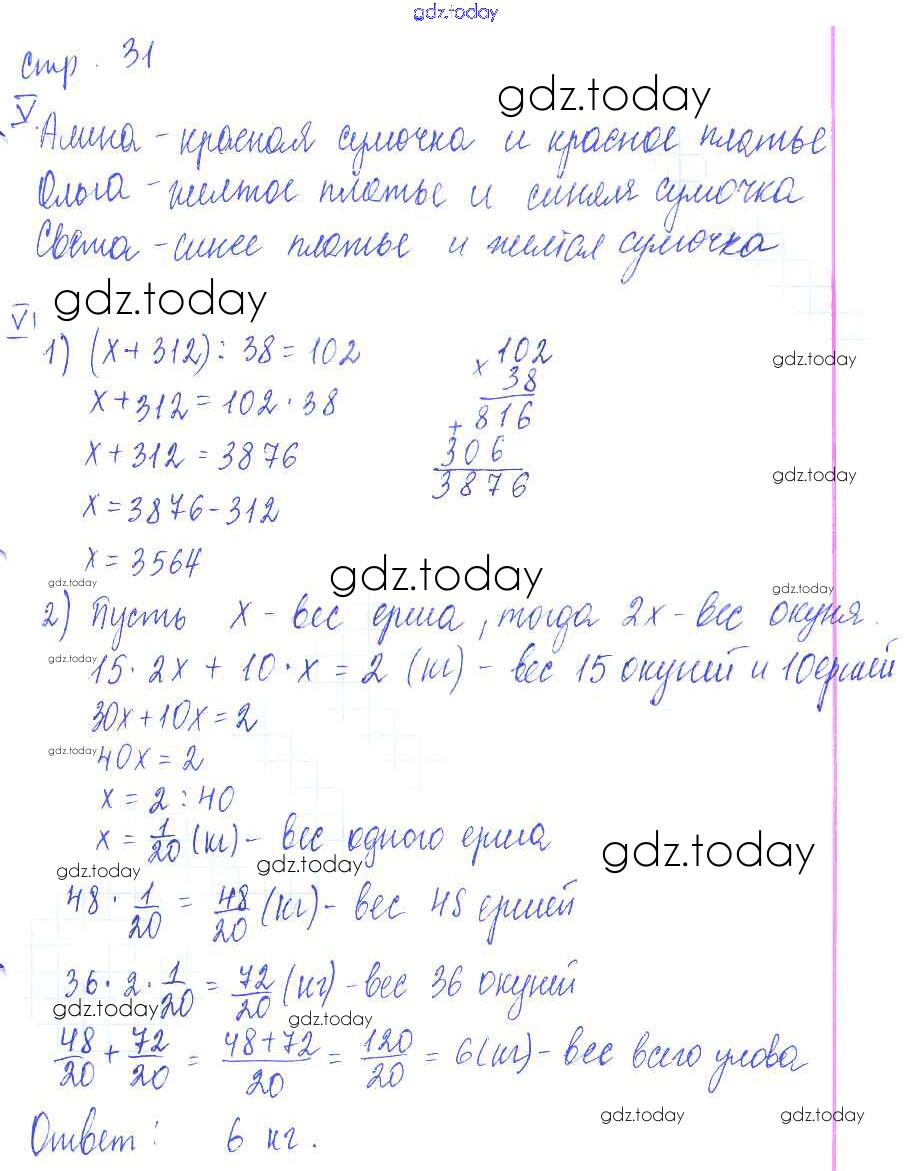 gdz.today
стр. 31
gdz.today
V.
Алина - красная сумочка и красное платье
Ольга - желтое платье и синяя сумочка
Света - синее платье и желтая сумочка
gdz.today
VI
1) (x + 312) : 38 = 102
x 102
gdz.today
38
x + 312 = 102 · 38
+ 816
x + 312 = 3876
306
gdz.today
3876
x = 3876 - 312
x = 3564
gdz.today
gdz.today
gdz.today
2) Пусть x - вес ерша, тогда 2x - вес окуня.
gdz.today
15 · 2x + 10 · x = 2 (кг) - вес 15 окуней и 10 ершей
30x + 10x = 2
gdz.today
40x = 2
x = 2 : 40
x = 1/20 (кг) - вес одного ерша
gdz.today
gdz.today
gdz.today
48 · 1/20 = 48/20 (кг) - вес 48 ершей
36 · 2 · 1/20 = 72/20 (кг) - вес 36 окуней
gdz.today
gdz.today
48/20 + 72/20 = 48+72/20 = 120/20 = 6 (кг) - вес всего улова
gdz.today
gdz.today
Ответ: 6 кг.